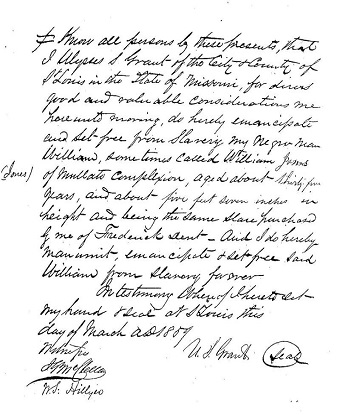 Know all persons by these presents, that
I Ulysses S Grant of the City & County of
St Louis in the State of Missouri, for divers
good and valuable considerations me
hereunto moving, do hereby emancipate
and set free from Slavery my Negro man
William, sometimes called William Jones
(Jones) of Mullatto complexion, aged about thirty-five
years, and about five feet seven inches in
height and being the same slave purchased
by me of Frederick Dent - And I do hereby
manumit, emancipate & set free said
William from slavery forever
In testimony Whereof I hereto set
my hand & seal at St Louis this
day of March AD 1859
Witnesses U. S. Grant Seal
W. S. Hillyer